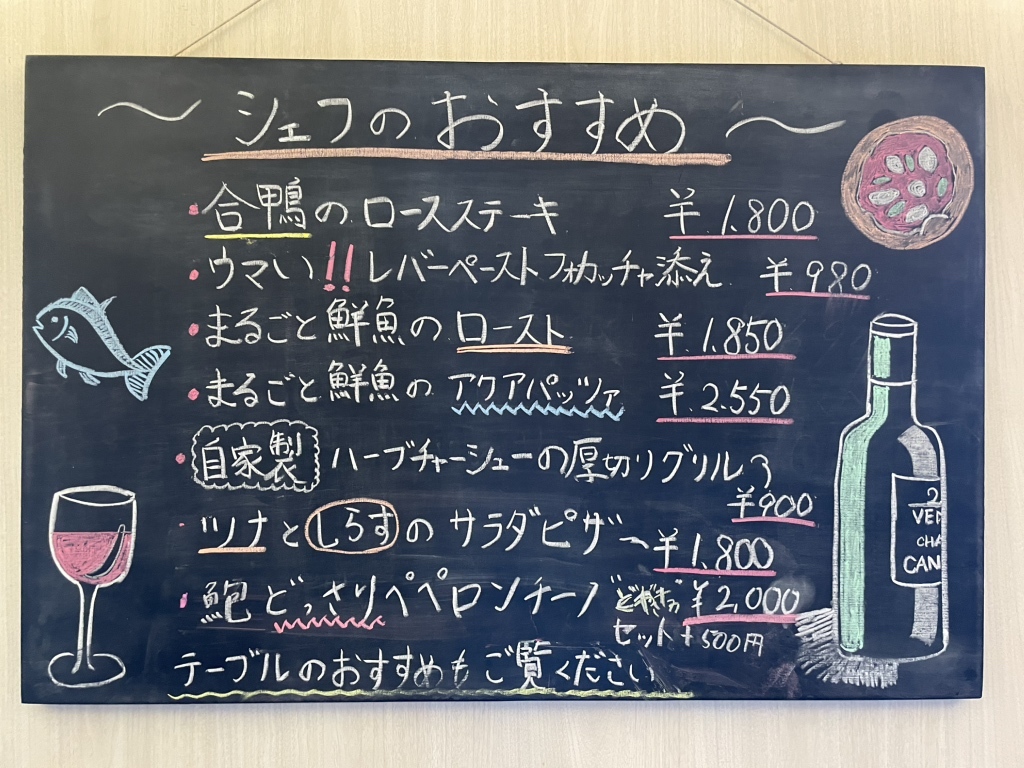 〜シェフのおすすめ〜
・合鴨のロースステーキ ¥1.800
・ウマい!!レバーペーストフォカッチャ添え ¥980
・まるごと鮮魚のロースト ¥1.850
・まるごと鮮魚のアクアパッツァ ¥2.550
・自家製ハーブチャーシューの厚切りグリル
¥900
・ツナとしらすのサラダピザ ¥1.800
・鮑どっさりペペロンチーノ ¥2,000
セット+500円
テーブルのおすすめもご覧ください
2
VEN
CHA
CAN